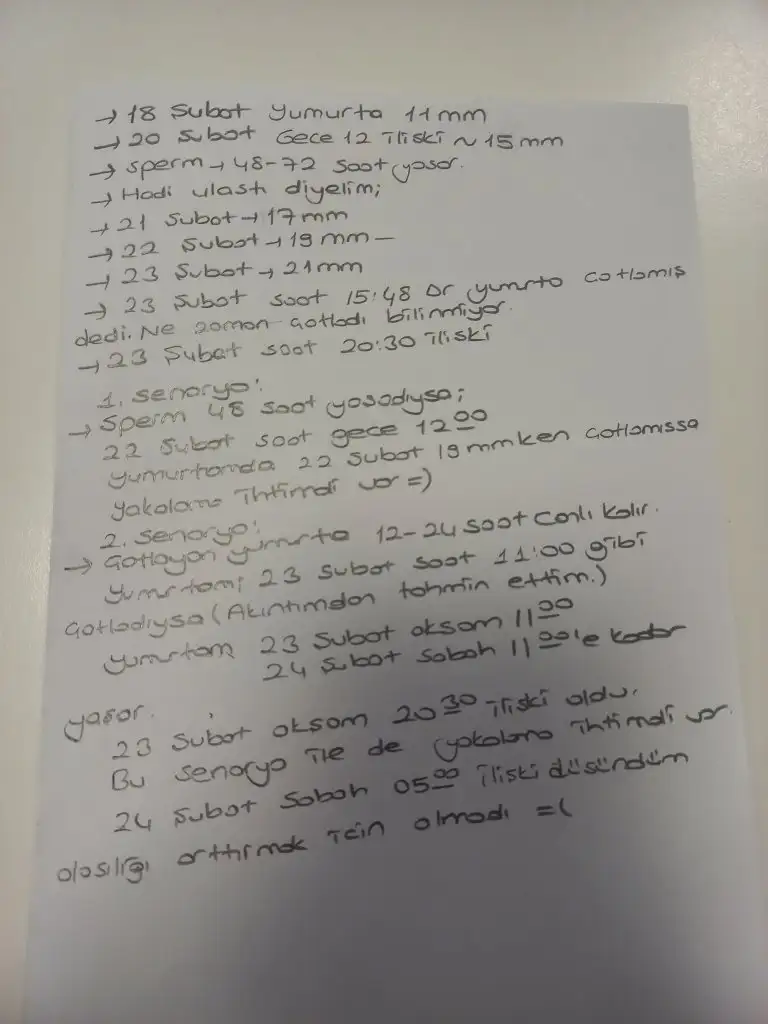 → 18 Şubat Yumurta 11mm
→ 20 Şubat Gece 12 ilişki ~ 15mm
→ Sperm → 48-72 Saat yaşar.
→ Hadi ulaştı diyelim;
→ 21 Şubat → 17mm
→ 22 Şubat → 19mm —
→ 23 Şubat → 21mm
→ 23 Şubat saat 15:48 Dr yumurta çatlamış
dedi. Ne zaman çatladı bilinmiyor.
→ 23 Şubat saat 20:30 ilişki
1. Senaryo:
→ Sperm 48 saat yaşadıysa;
22 Şubat saat gece 12 00
Yumurtamda 22 Şubat 19mmken çatlamışsa
Yakalama ihtimali var =)
2. Senaryo:
→ Çatlayan yumurta 12-24 saat canlı kalır.
Yumurtam; 23 Şubat saat 11:00 gibi
çatladıysa (Akıntımdan tahmin ettim.)
Yumurtam 23 Şubat akşam 11 00
24 Şubat Sabah 11 00'e kadar
yaşar.
23 Şubat akşam 20 30 ilişki oldu.
Bu senaryo ile de yakalama ihtimali var.
24 Şubat Sabah 05 00 ilişki düşündüm
olasılığı arttırmak için olmadı =(